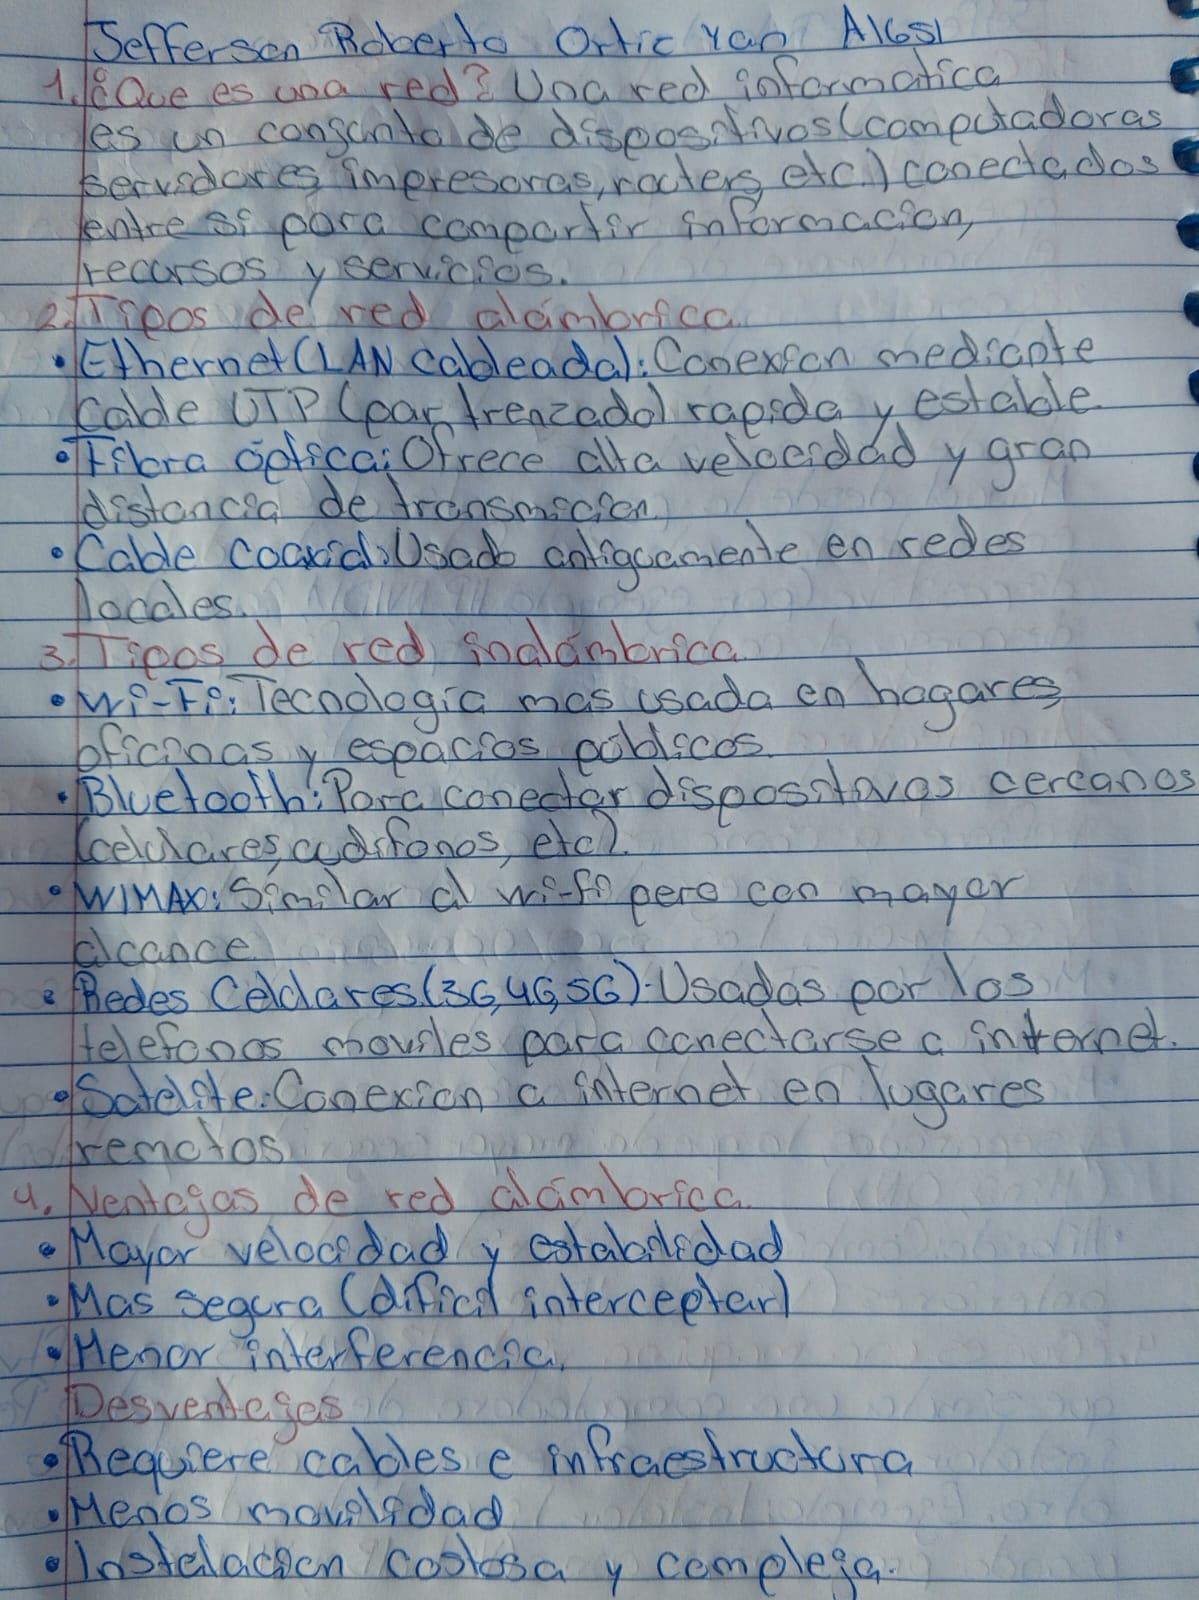 Jefferson Roberto Ortiz Yan A16S1
1. ¿Que es una red? Una red informatica
es un conjunto de dispositivos (computadoras
servidores, impresoras, routers, etc.) conectados
entre si para compartir informacion,
recursos y servicios.
2. Tipos de red alámbrica
• Ethernet (LAN cableada): Conexion mediante
Cable UTP (par trenzado) rapida y estable.
• Fibra óptica: Ofrece alta velocidad y gran
distancia de transmicion.
• Cable coaxial: Usado antiguamente en redes
locales.
3. Tipos de red inalámbrica
• Wi-Fi: Tecnología mas usada en hogares,
oficinas y espacios públicos.
• Bluetooth: Para conectar dispositovos cercanos
(celulares, audifonos, etc).
• WIMAX: Similar al wi-fi pero con mayor
alcance
• Redes Celulares (3G, 4G, 5G): Usadas por los
telefonos moviles para conectarse a internet.
• Satelite: Conexion a internet en lugares
remotos
4. Ventajas de red alámbrica
• Mayor velocidad y estabilidad
• Mas segura (dificil interceptar)
• Menor interferencia.
Desventajas
• Requiere cables e infraestructura
• Menos movilidad
• Instalacion costosa y compleja.